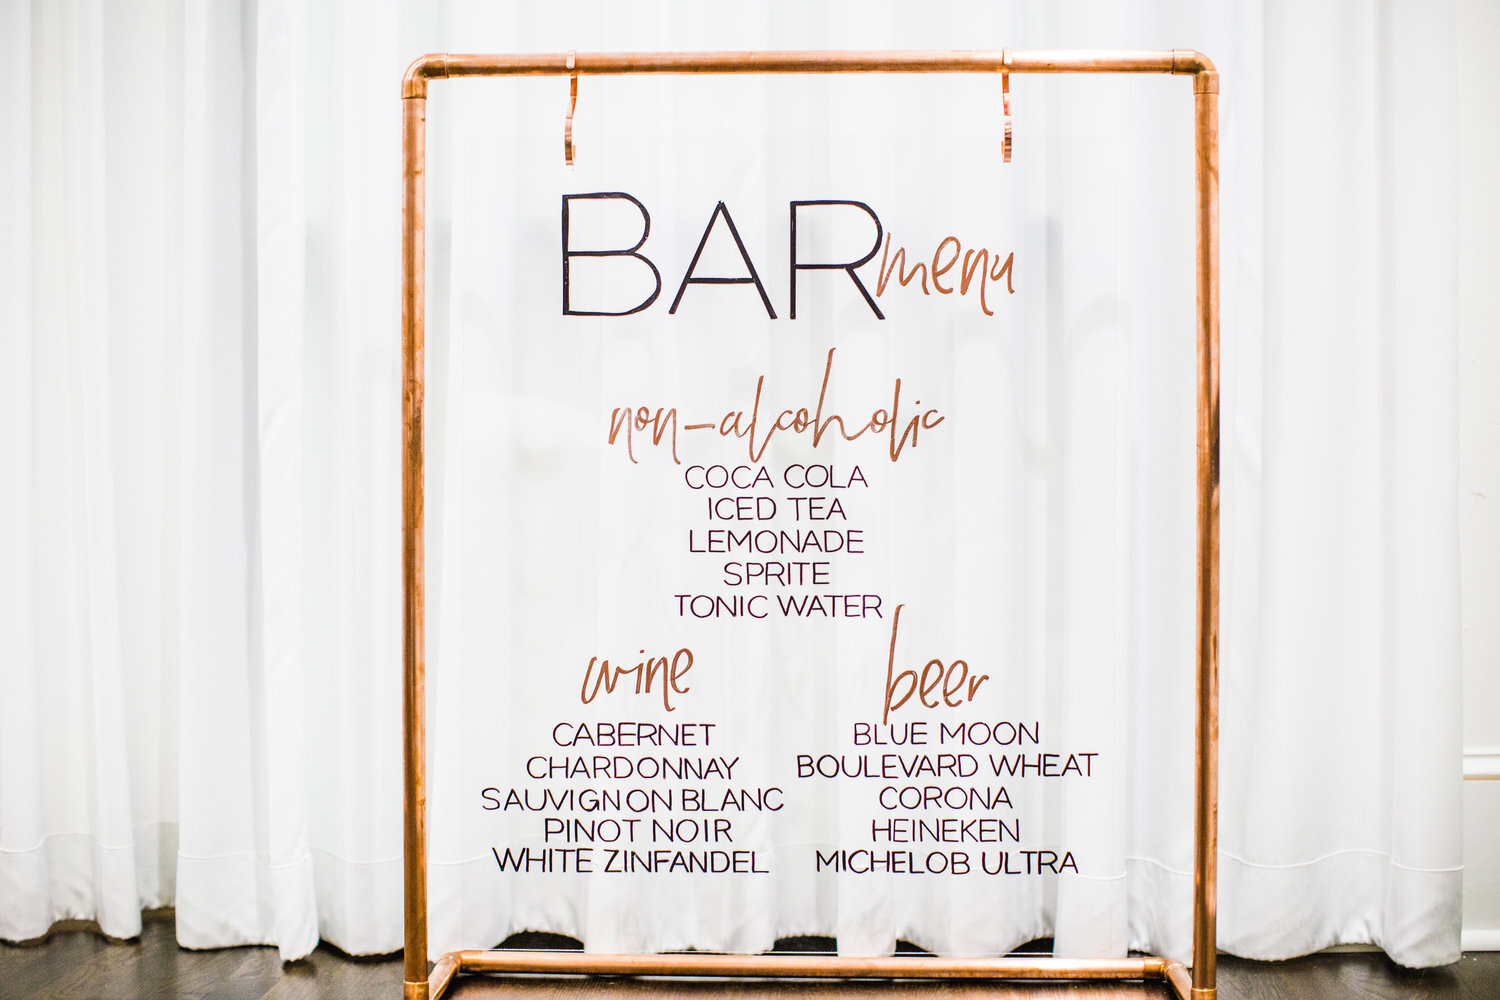 BAR menu
non-alcoholic
COCA COLA
ICED TEA
LEMONADE
SPRITE
TONIC WATER
wine
CABERNET
CHARDONNAY
SAUVIGNON BLANC
PINOT NOIR
WHITE ZINFANDEL
beer
BLUE MOON
BOULEVARD WHEAT
CORONA
HEINEKEN
MICHELOB ULTRA